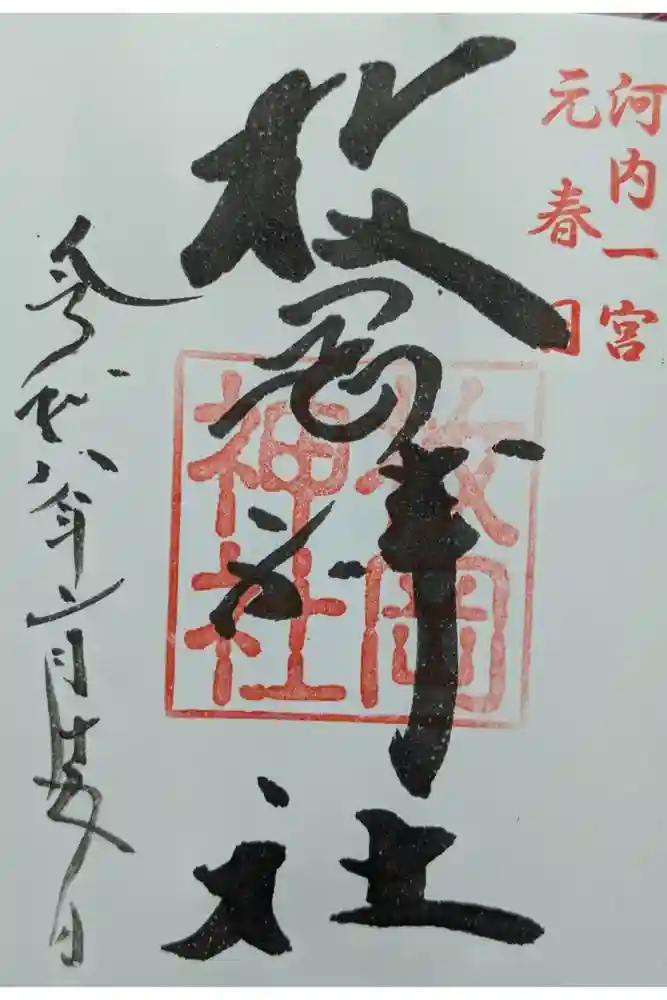 河内一宮
元春日
枚岡神社
枚岡
神社
令和八年二月 日